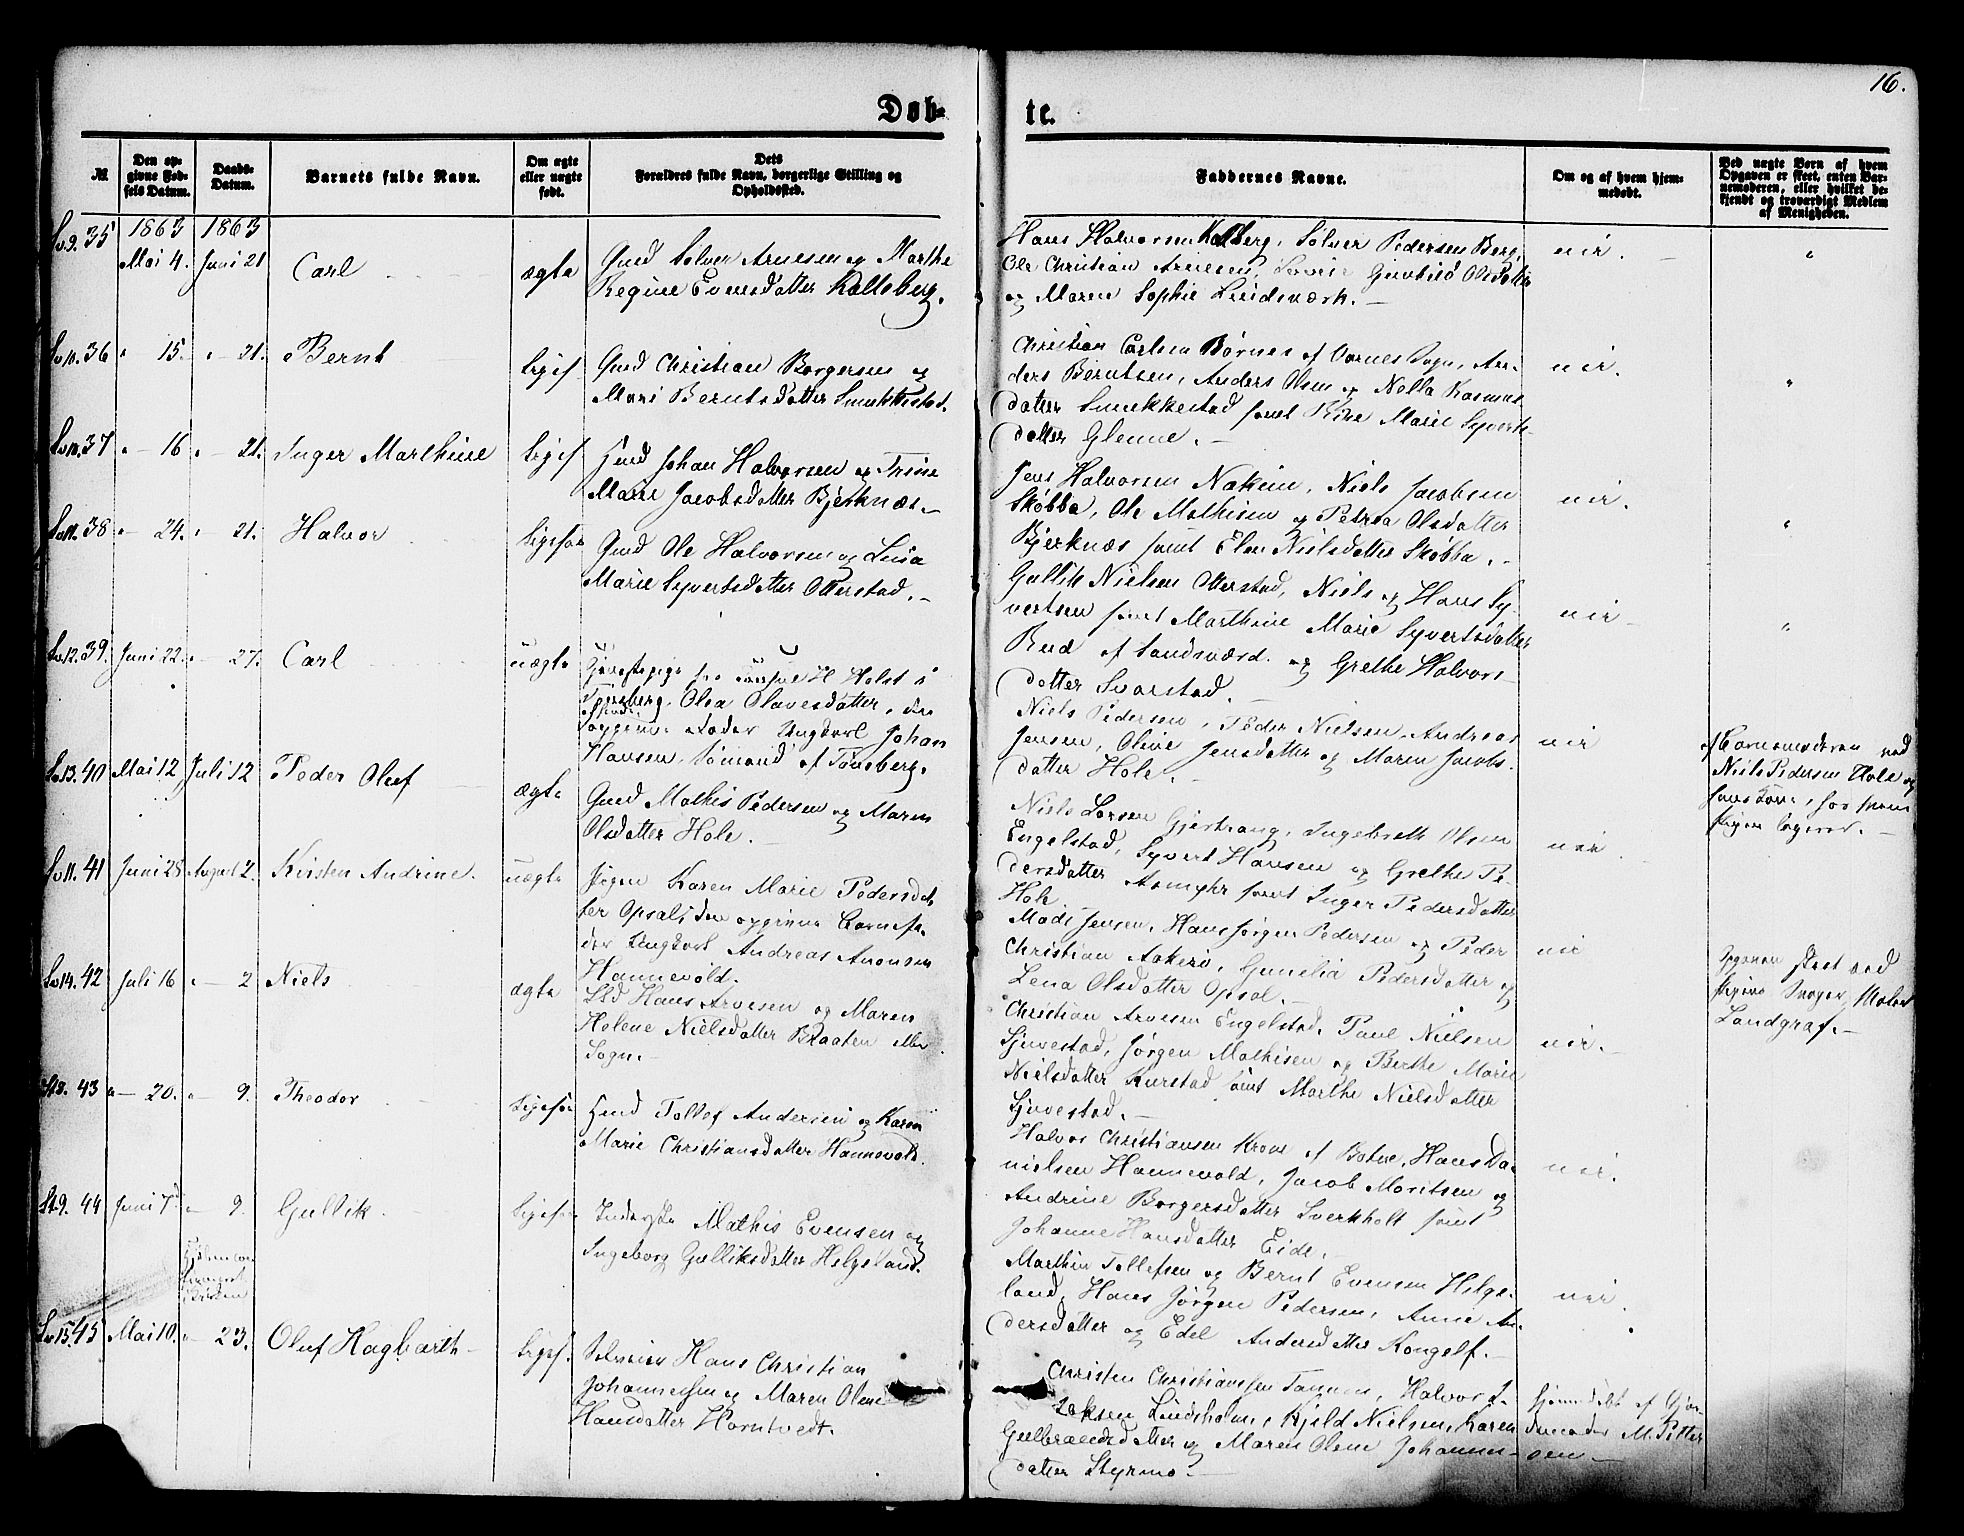 16.
Døb-
te.
№
Den op-
givne Fød-
sels Datum.
Daabs-
Datum.
Barnets fulde Navn.
Om ægte
eller uægte
født.
Dets
Forældres fulde Navn, borgerlige Stilling og
Opholdssted.
Faddernes Navne.
Om og af hvem hjem-
medøbt.
Ved uægte Børn af hvem
Opgaven er skeet, enten Bar-
nemoderen, eller hvilket be-
kjendt og troværdigt Medlem
af Menigheden.
1863 1863
35 Mai 4. Juni 21 Carl ægte
Gmd Sølver Arnesen og Marthe
Regine Evensdatter Kalleberg.
Hans Halvorsen Kalleberg, Sølver Pedersen Berg,
Ole Christian Arnesen, Olsdatter
og Maren Sophie Lindværk.
nei.
36 15. 21. Bernt liges
Gmd Christian Borgersen og
Mari Berntsdatter Smukkestad.
Christian Carlsen Børnes af Sogn, An-
ders Berntsen, Anders Olsen og Rasmus
datter Smukkestad samt Marie Syverts-
datter Glenne.
nei.
37 16 21. Inger Marthine ligef
Hmd Johan Halvorsen og Trine
Marie Jacobsdatter Bjerknæs.
Jens Halvorsen Nakim, Niels Jacobsen
Skøbba, Ole Mathisen og Petrea Olsdatter
Bjerknæs samt Elen Nielsdatter Skøbba.
nei.
38 24. 21. Halvor ligesaa
Gmd Ole Halvorsen og Lina
Marie Syvertsdatter Otterstad.
Gullik Nielsen Otterstad, Niels og Hans Sy-
vertsen samt Marthine Marie Syvertsdatter
Rud af Sandsværd og Grethe Halvors-
datter Svarstad.
nei
39. Juni 22. 27. Carl uægte
Tjenestepige hos Consul H Holst i
Tønsberg, Olea Olavesdatter, den
opgivne Fader Ungkarl Johan
Hansen, Sømand af Tønsberg.
Niels Pedersen, Peder Nielsen, Andreas
Jensen, Oline Jensdatter og Maren Jacobs-
datter Hole.
nei
af Barnemoderen ved
Niels Pedersen Hole og
40 Mai 12 Juli 12 Peder Oluf ægte
Gmd Mathis Pedersen og Maren
Olsdatter Hole.
Niels Larsen Gjertrang, Ingebrett Olsen
Engelstad, Syvert Hansen og Grethe Pe-
dersdatter Aamyhr samt Inger Pedersdatter
Hole
nei
41 Juni 28 August 2. Kirsten Andrine. uægte
Pigen Karen Marie Pedersdat-
ter Opsal, den opgivne Barnefa-
der Ungkarl Andreas Aronsen
Hannevold.
Mads Jensen, Hans Jørgen Pedersen og Peder
Christian Aakerø, Gunelia Pedersdatter og
Lena Olsdatter Opsal.
nei
Opgaven skeet ved
Landgraf.
42 Juli 16 2 Niels ægte
Hans Arvesen og Maren
Helene Nielsdatter Braaten
Sogn.
Christian Arvesen Engelstad, Paul Nielsen
Sjuvestad, Jørgen Mathisen og Berthe Marie
Nielsdatter Kurstad samt Marthe Nielsdatter
Sjuvestad.
nei.
43 20. 9. Theodor ligesaa
Hmd Tollef Andersen og Karen
Marie Christiansdatter Hannevold.
Halvor Christiansen Krove af Botne, Hans Da-
nielsen Hannevold, Jacob Moritsen og
Andrine Borgersdatter Sverkholt samt
Johanne Hansdatter Eide.
nei.
44 Juni 7 9. Gullik ligesaa
Inderste Mathis Evensen og
Ingeborg Gulliksdatter Helgeland.
Marthin Tollefsen og Bernt Evensen Helge-
land, Hans Jørgen Pedersen, Anne An-
dersdatter og Edel Andersdatter Kongelf.
nei.
45 Mai 10. 23. Oluf Hagbarth ligef.
Selveier Hans Christian
Johannessen og Maren Oline
Hansdatter Horntvedt.
Christen Christianssen Tannum, Halvor I-
saksen Lindsholm, Kjeld Nielsen, Karen
Gulbrandsdatter og Maren Oline Johannes-
datter Styrmo.
hjemmedøbt af Gjor-
demoder M. Petter
sen